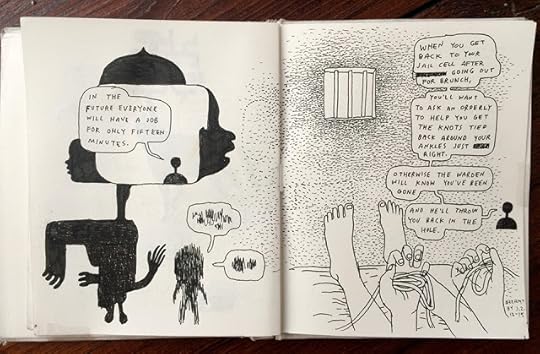 IN THE
FUTURE EVERYONE
WILL HAVE A JOB
FOR ONLY FIFTEEN
MINUTES.
WHEN YOU GET
BACK TO YOUR
JAIL CELL AFTER
GOING OUT
FOR BRUNCH,
YOU'LL WANT
TO ASK AN ORDERLY
TO HELP YOU GET
THE KNOTS TIED
BACK AROUND YOUR
ANKLES JUST
RIGHT.
OTHERWISE THE WARDEN
WILL KNOW YOU'VE BEEN
GONE
AND HE'LL THROW
YOU BACK IN THE
HOLE.